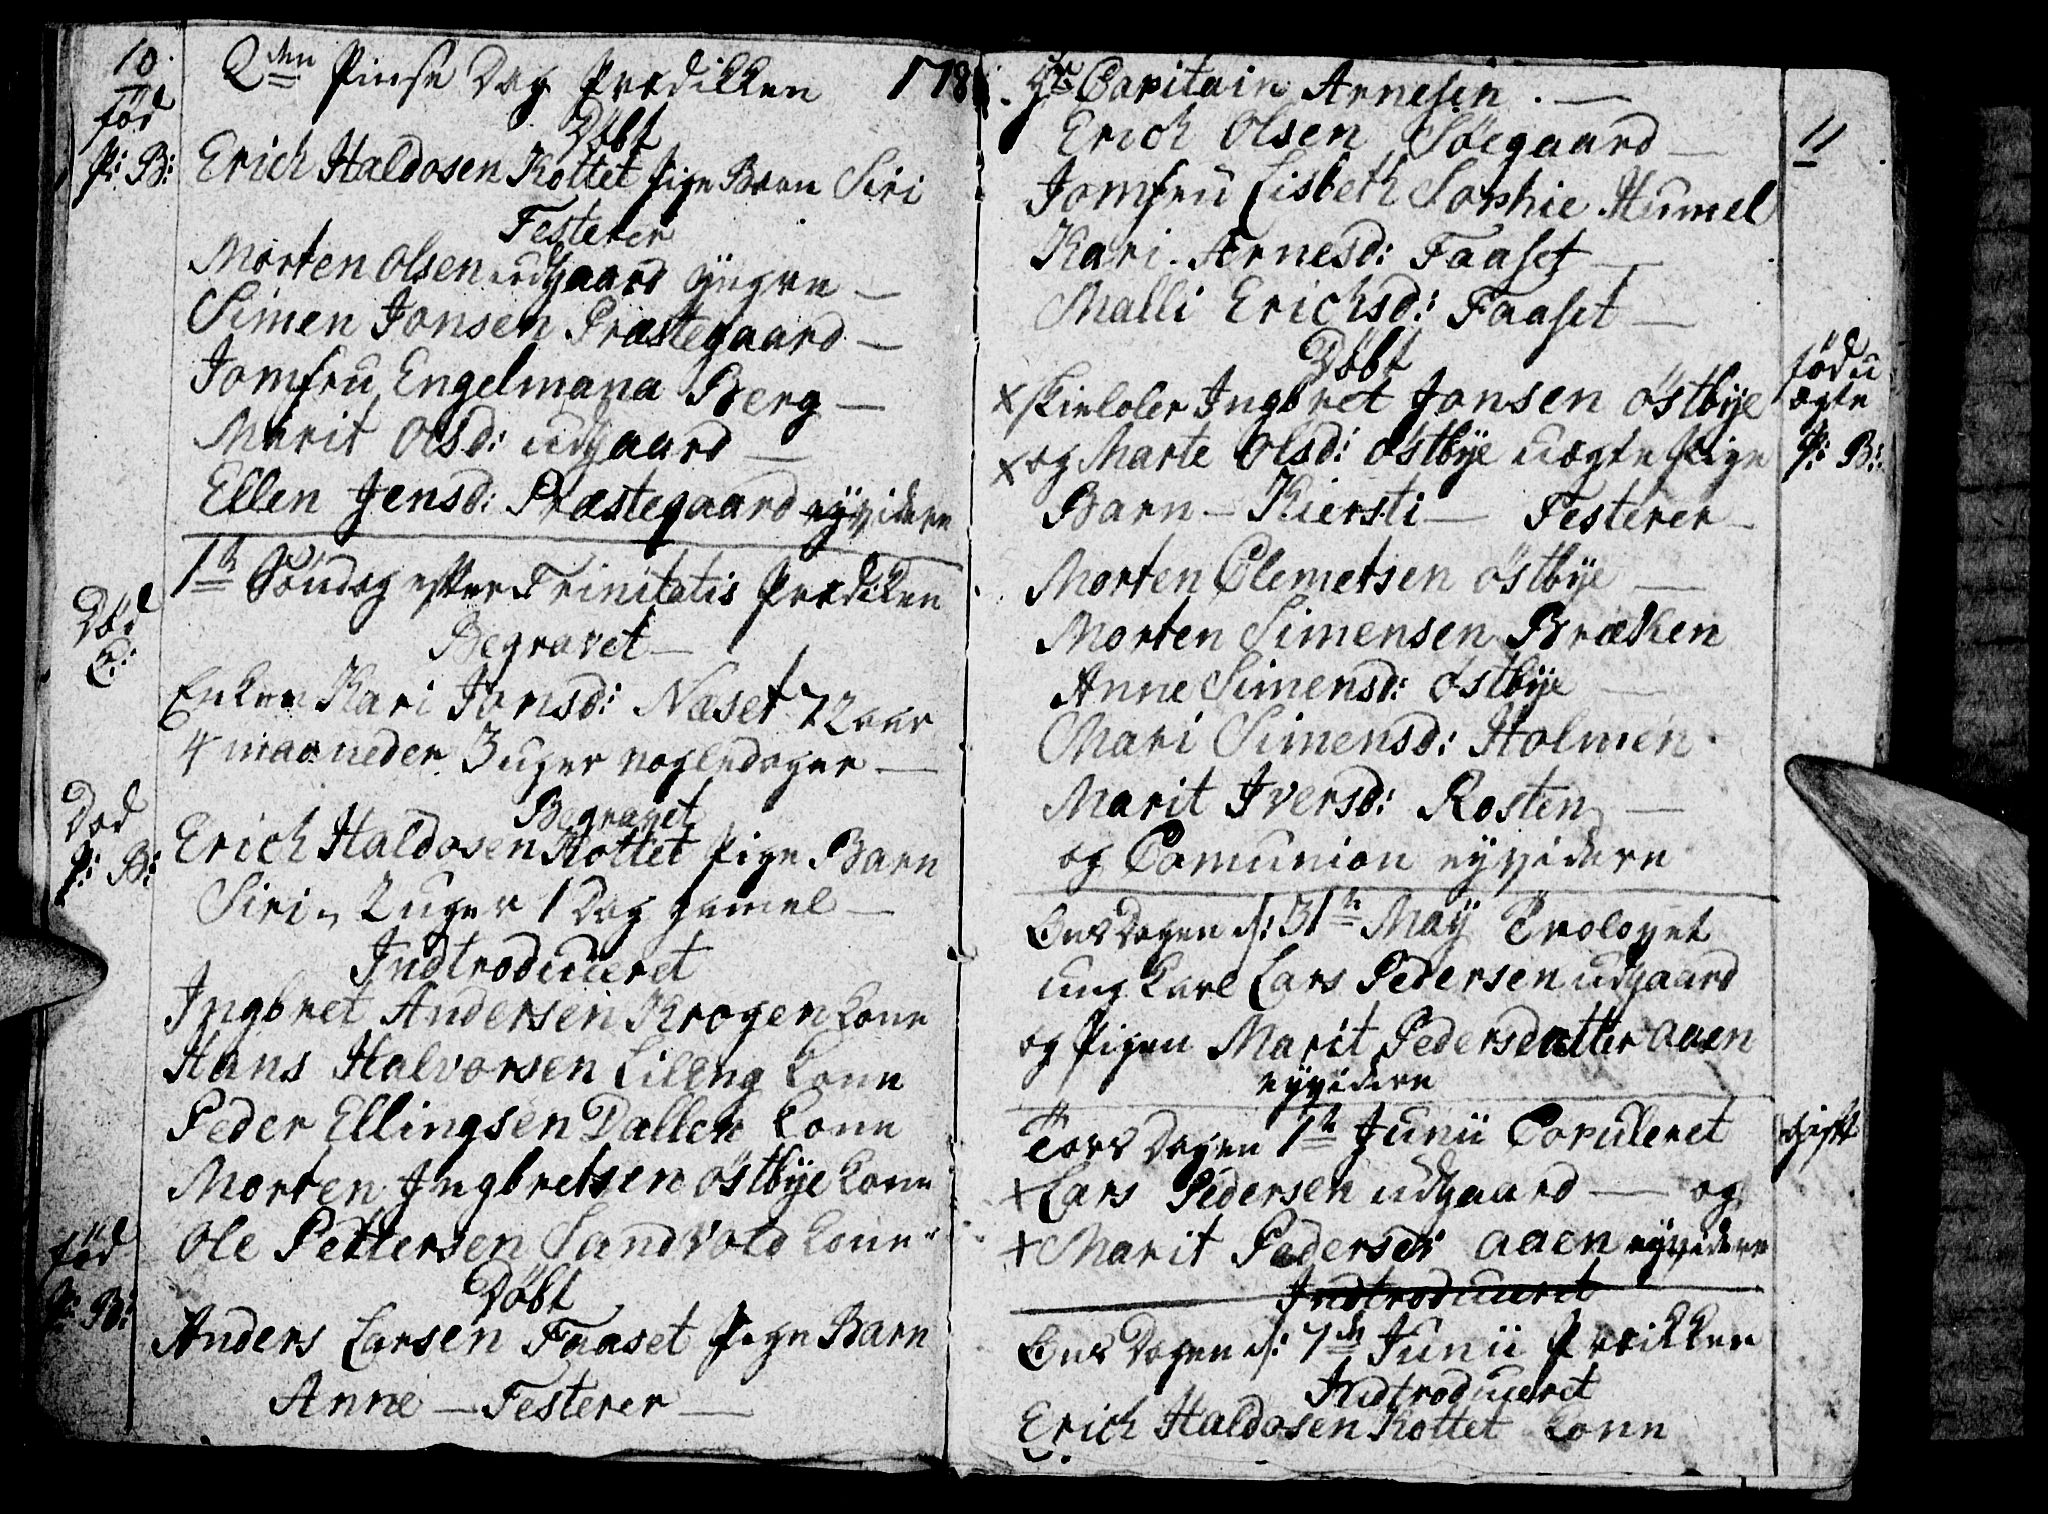 10.
2den Pinse Dag Prædikken 178
Død
født
P: B:
Døbt
Erich Haldosen Kottet Pige Barn Siri
Festerer
Morten Olsen udgaard yngre —
Simen Jonsen Præstegaard —
Jomfru Engelmana Berg —
Marit Olsd: udgaard —
Ellen Jensd: Præstegaard eyvidere
1te Søndag efter Trinitatis Prediken
Død
E:
Begravet —
Enken Kari Jonsd: Næset 72 aar
4 maaneder 3 uger nogledager —
Død
P: B:
Begravet
Erich Haldosen Kottet Pige Barn
Siri 2 uger 1 Dag gamel —
Indtroduceret
Ingbret Andersen Krogen kone
Hans Halvorsen Lilleng kone
Peder Ellingsen Dallen kone
Morten Ingbretsen Østbye kone
Ole Pettersen Sandvold kone
fød
P: B:
Døbt
Anders Larsen Faaset Pige Barn
Anne — Festerer —
Hr Capitain Arnesen. —
11
Erich Olsen Søegaard —
Jomfru Lisbeth Sophie Humel
Kari Arnesd: Faaset —
Malli Erichsd: Faaset —
Døbt
fød u
ægte
P: B:
× Skieløber Ingbret Jonsen Østbye
× og Marte Olsd: Østbye uægte Pige
Barn — Kiersti — Festerer —
Morten Clemetsen Østbye —
Morten Simensen Bræken
Anne Simensd: Østbye —
Mari Simensd: Holmen
Marit Iversd: Rosten —
og Comunion eyvidere
Ons Dagen d: 31te May Troloyet
ung karl Lars Pedersen udgaard
og Pigen Marit Pedersdatter aaen
eyvidere
Tors Dagen 1te Junii Copuleret
gift
× Lars Pedersen udgaard — og
× Marit Pedersdr aaen eyvidere
Indtroduceret
Ons Dagen d: 7de Junii Prædikken
Indtroduceret
Erich Haldosen Kottet kone